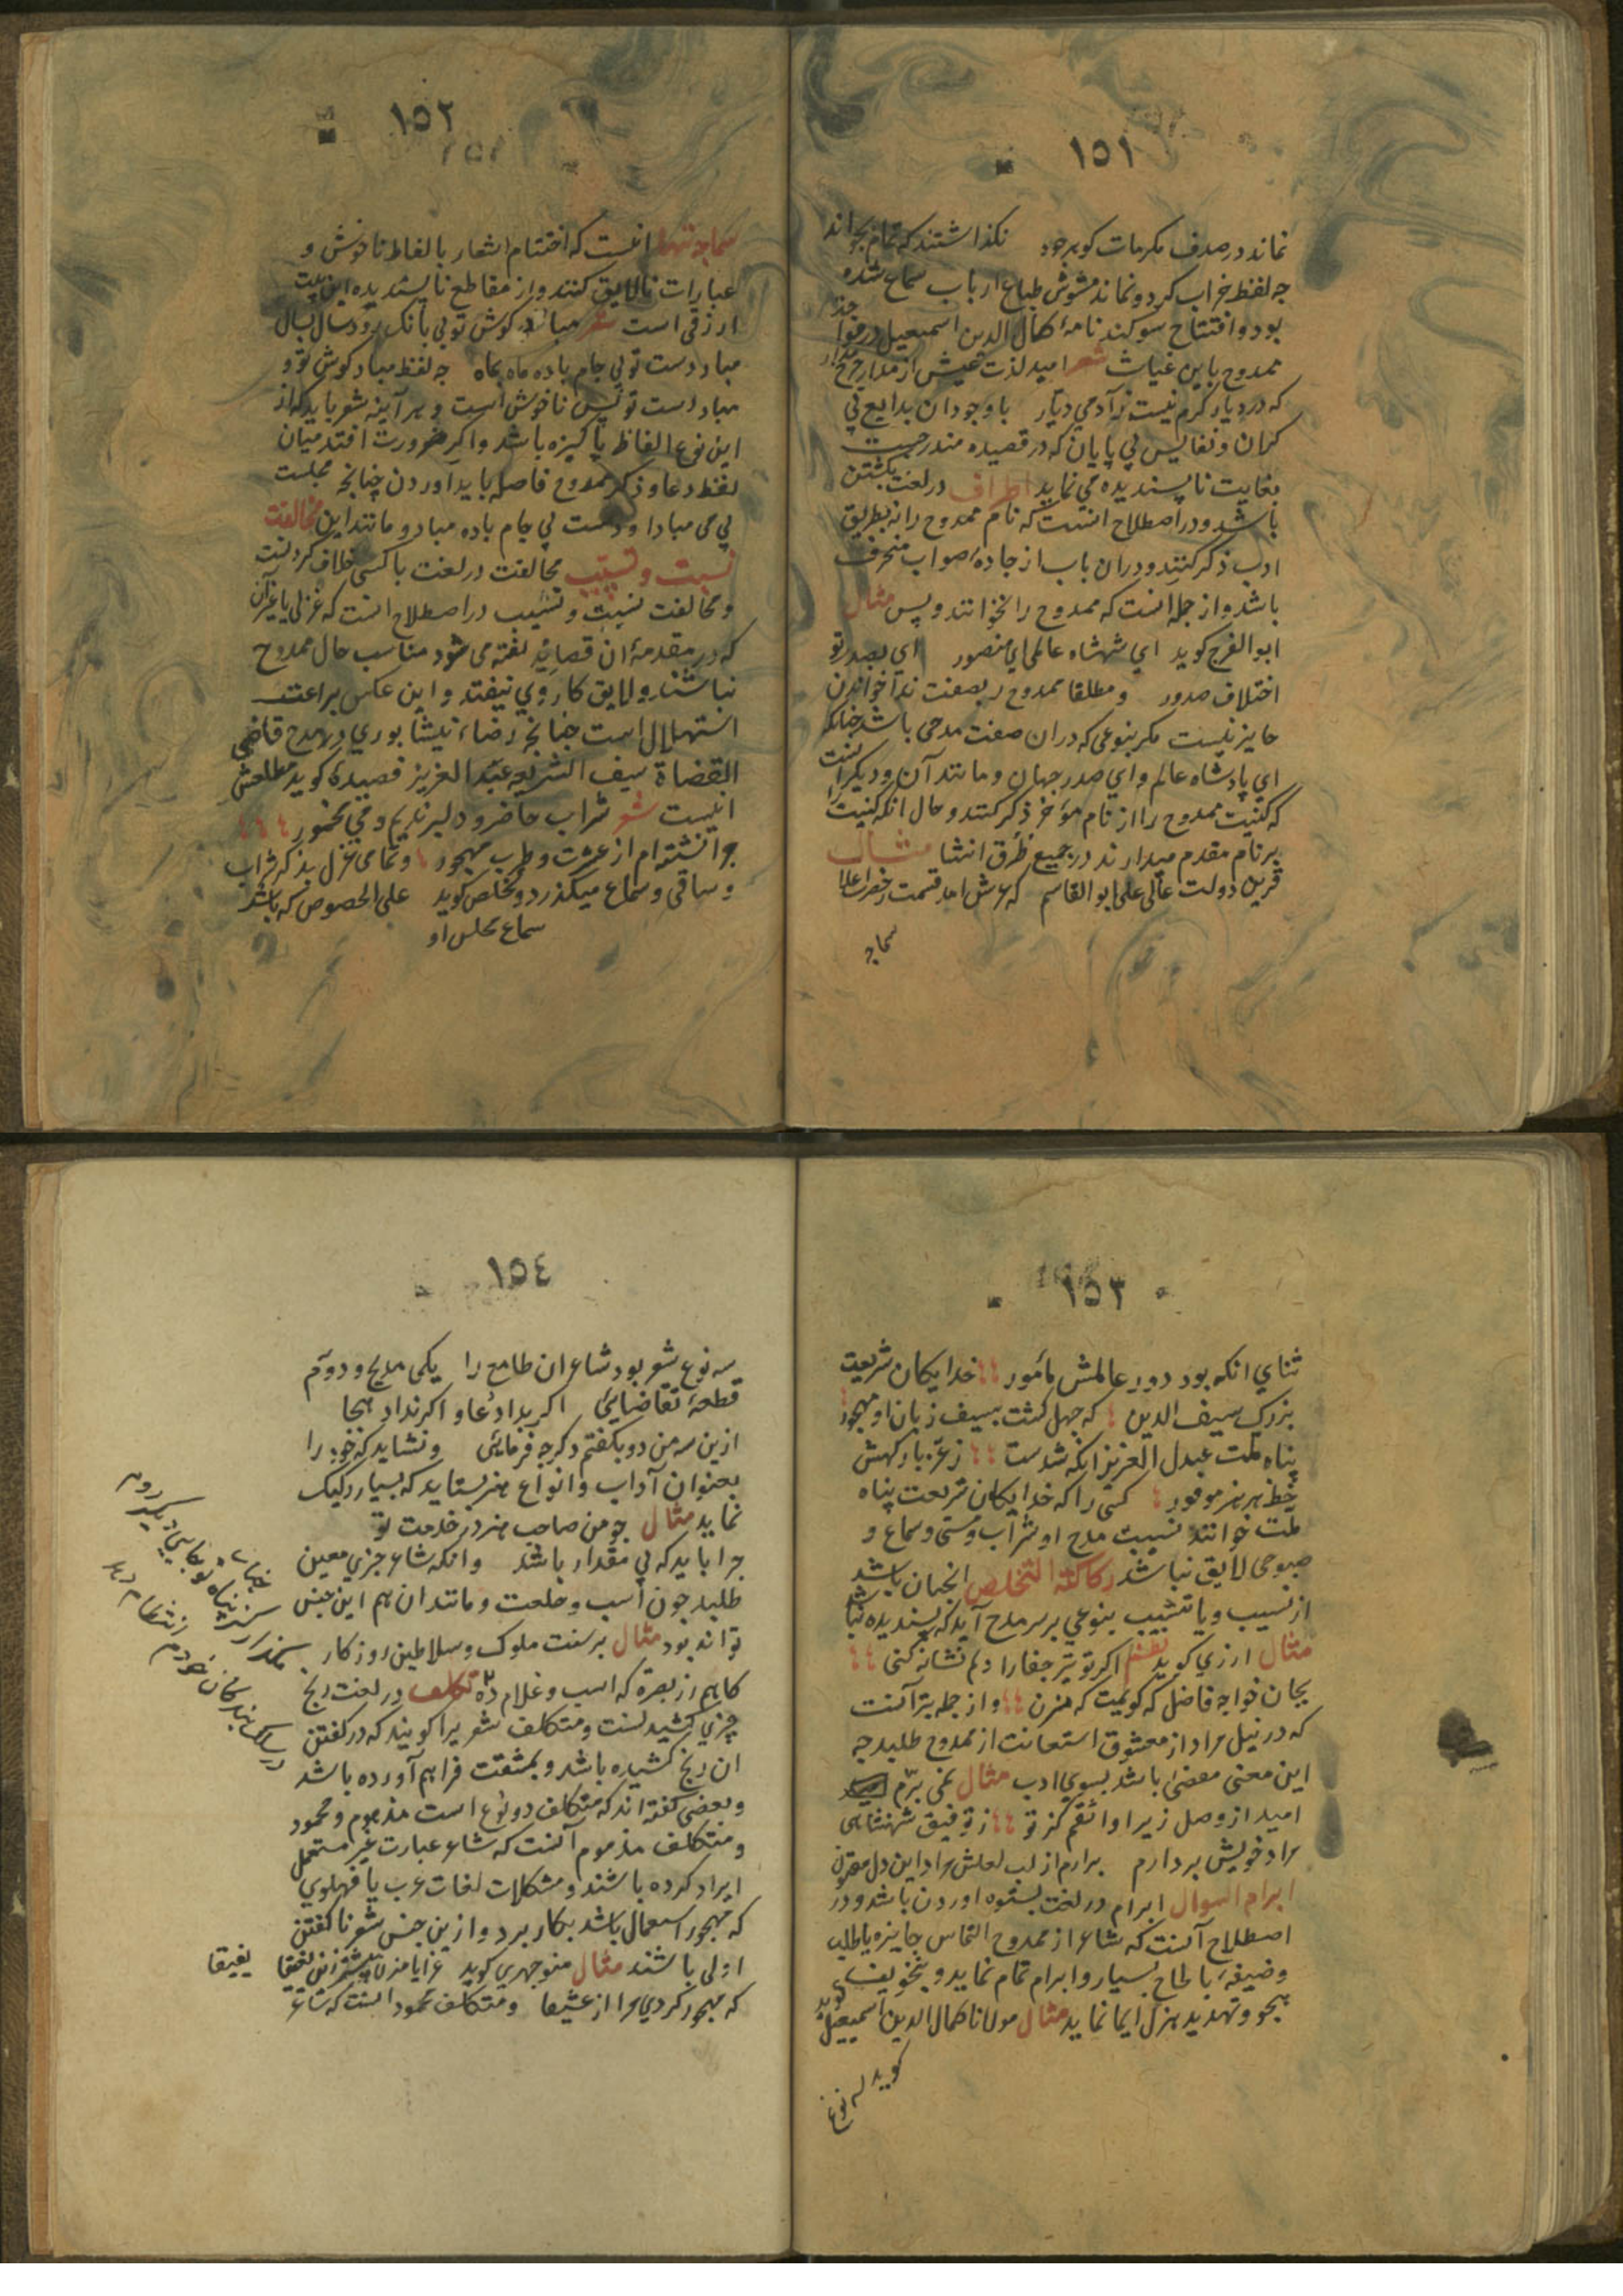 ١٥١
نماند در صدف مکرمات کوهر جود نکذاشتند که تمام بخواند
چه لفظ خراب کرد و نماند مشوش طباع ارباب سماع شده
بود و افتتاح سوکند نامهٔ کمال الدین اسمعیل در
ممدوح باین غیاث شعر امید لذت عیش از مدار چرخ مدار
که در دیار کرم نیست ز آدمی دیار با وجود ان بدایع بی
کران و نفایس بی پایان که در قصیده مندرجست
بغایت ناپسندیده می نماید اطراف در لغت بکشتن
باشد و در اصطلاح انست که نام ممدوح را نه بطریق
ادب ذکر کنند و دران باب از جادهٔ صواب منحرف
باشد و از جمله انست که ممدوح را نخوانند و پس مثال
ابو الفرج کوید ای شهشاه عالم ای منصور ای بصدر تو
اختلاف صدور و مطلقا ممدوح بصفت ندا خواندن
جایز نیست مکر بنوعی که دران صفت مدحی باشد چنانکه
ای پادشاه عالم و ای صدر جهان و مانند آن و دیکر انست
که کنیت ممدوح را از نام مؤخر ذکر کنند و حال انکه کنیت را
بر نام مقدم میدارند در جمیع طرق انشا مثال
قرین دولت عالی علی ابو القاسم که عرش
سماجه
١٥٢
سماجه انتها انست که اختتام اشعار بالفاظ ناخوش و
عبارات نالایق کنند و از مقاطع ناپسندیده این بیت
ارزقی است شعر مباد کوش تو بی بانک رود سال بسال
مباد دست تو بی جام باده ماه بماه چه لفظ مباد کوش تو و
مباد دست تو بس ناخوش است و هر آینه شعر باید که از
این نوع الفاظ پاکیزه باشد و اکر ضرورت افتد میان
لفظ دعا و ذکر ممدوح فاصله باید آوردن چنانچه مجلست
بی می مبادا و دست بی جام باده مباد و مانند این مخالفت
نسبت و تشبیب مخالفت در لغت با کسی خلاف کردنست
و مخالفت نسبت و تشبیب در اصطلاح انست که غزلی یا غیر آن
که در مقدمهٔ ان قصائد کفته می شود مناسب حال ممدوح
نباشد و لایق کار وی نیفتد و این عکس براعت
استهلال است چنانچه رضاء نیشابوری در مدح قاضی
القضاة سیف الشریعه عبد العزیز قصیدهٔ کوید مطلعش
اینست شعر شراب حاضر و دلبر ندیم و می مخمور
چرا نشته ام از عشرت و طرب مهجور و تمامی غزل بذکر شراب
و ساقی و سماع میکذرد و تخلص کوید علی الخصوص که باشد
سماع مجلس او
١٥٣
ثنای انکه بود دور عالمش مأمور خدایکان شریعت
بزرک سیف الدین که جهل کشت بسیف زبان او مهجور
پناه ملت عبدل العزیز انکه شدست ز عز بارکهش
خط هر هنر موفور کسی را که خدایکان شریعت پناه
ملت خوانند نسبت مدح او بشراب و مستی و سماع و
صبوحی لایق نباشد رکاکة التخلص انچنان باشد
از نسیب و یا تشبیب بنوعی بر سر مدح آید که پسندیده نباشد
مثال ارزقی کوید نظم اکر تو تیر جفا را دلم نشانه کنی
بجان خواجه فاضل که کویمت که مزن و از جمله بتر آنست
که در نیل مراد از معشوق استعانت از ممدوح طلبد چه
این معنی مفضی باشد بسوی ادب مثال نمی برّم
امید از وصل زیرا واثقم کز تو ز توفیق شهنشاهی
مراد خویش بردارم برارم از لب لعلش مراد این دل
ابرام السوال ابرام در لغت بستوه اوردن باشد و در
اصطلاح آنست که شاعر از ممدوح التماس جایزه یا طلب
وضیفه بالحاح بسیار و ابرام تمام نماید و بتخویف
هجو و تهدید هزل ایما نماید مثال مولانا کمال الدین اسمعیل کوید
کوید سه نوع
١٥٤
سه نوع شعر بود شاعران طامع را یکی مدیح و دوّم
قطعهٔ تقاضایی اکر بداد دعا و اکر نداد هجا
ازین سه من دو بکفتم دکر چه فرمایی و نشاید که خود را
بعنوان آداب و انواع هنر بستاید که بسیار رکیک
نماید مثال چو من صاحب هنر در خدمت تو
چرا باید که بی مقدار باشد و انکه شاعر چیزی معین
طلبد چون اسب و خلعت و مانند ان هم این جنس
تواند بود مثال بر سنت ملوک و سلاطین روزکار
کاهم زر بصره که اسب و غلام ده تکلف در لغت رنج
چیزی کشیدنست و متکلف شعر یرا کویند که در کفتن
ان رنج کشیده باشد و بمشقت فراهم آورده باشد
و بعضی کفته اند که متکلف دو نوع است مذموم و محمود
و متکلف مذموم آنست که شاعر عبارت غیر مستعمل
ایراد کرده باشند و مشکلات لغات عرب یا فهلوی
که مهجور استعمال باشد بکار برد و ازین جنس شعر ناکفتن
اولی باشند مثال منوچهری کوید
که مهجور کردی مرا از عشیقا و متکلف محمود انست که شاعر